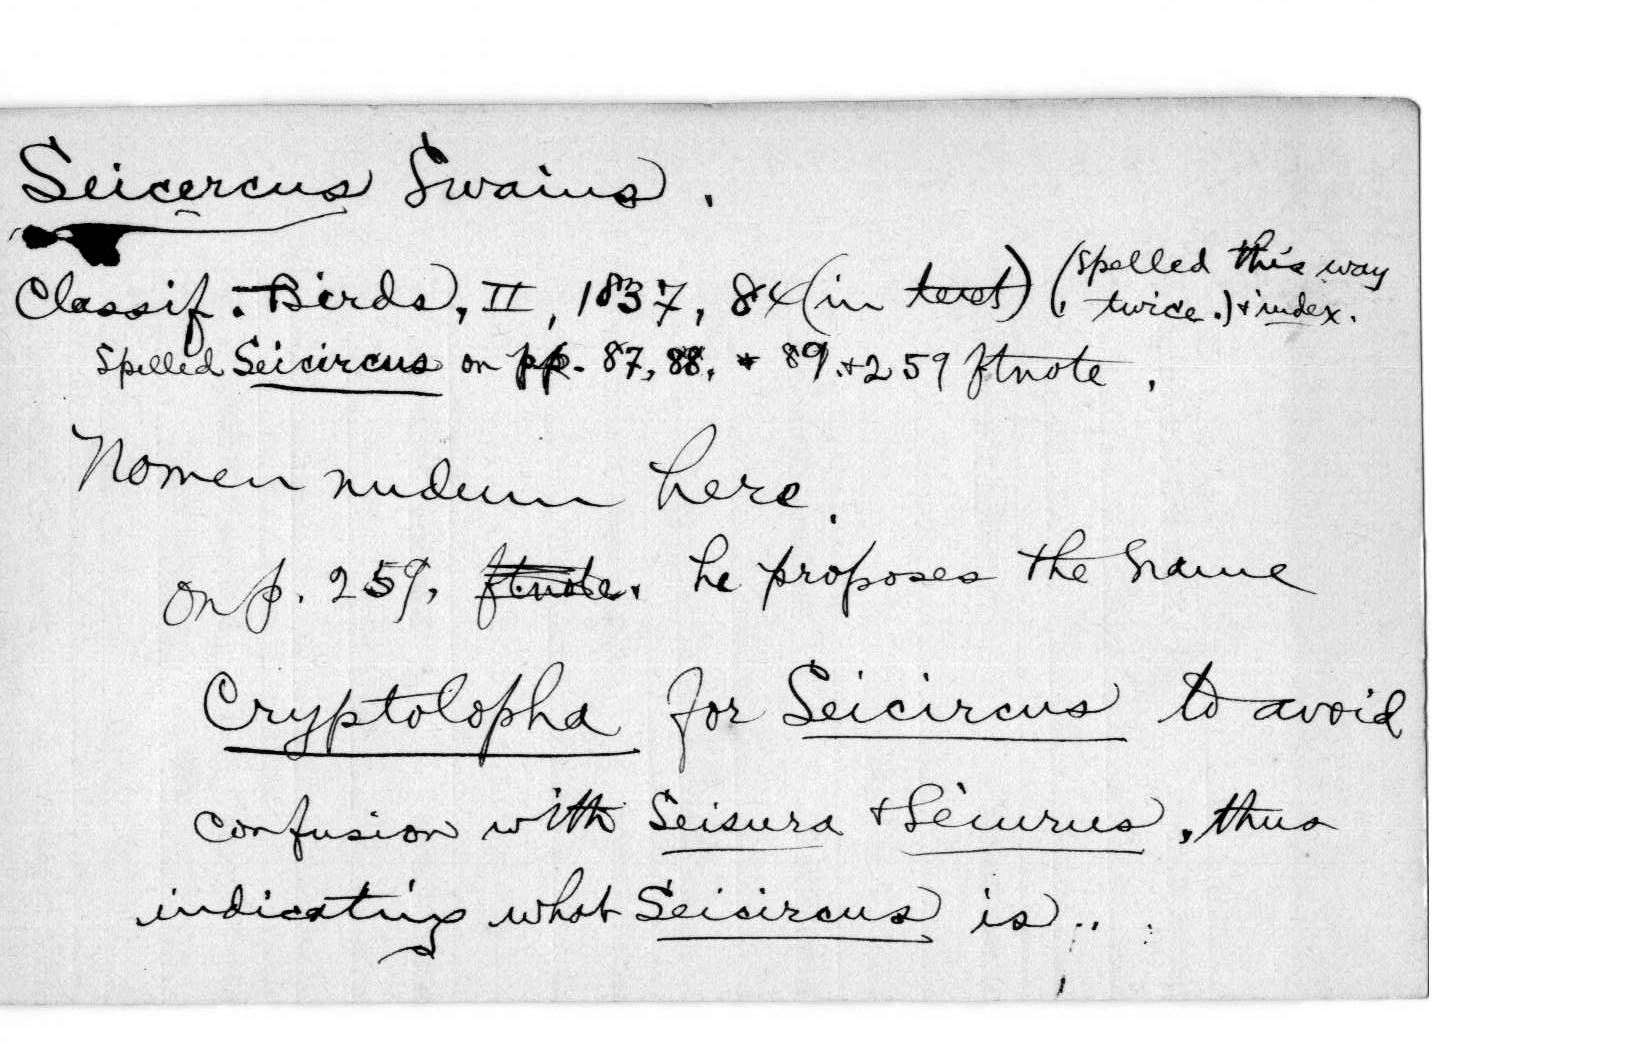 Seicercus Swains.
Classif. Birds, II, 1837, 84 (in text) (spelled this way
twice.) & index.
Spelled Seicircus on pp. 87, 88, & 89. & 259 ftnote.
Nomen nudum here.
On p. 259, ftnote. he proposes the name
Cryptolopha for Seicircus to avoid
confusion with Seisura & Seiurus, thus
indicating what Seicircus is..